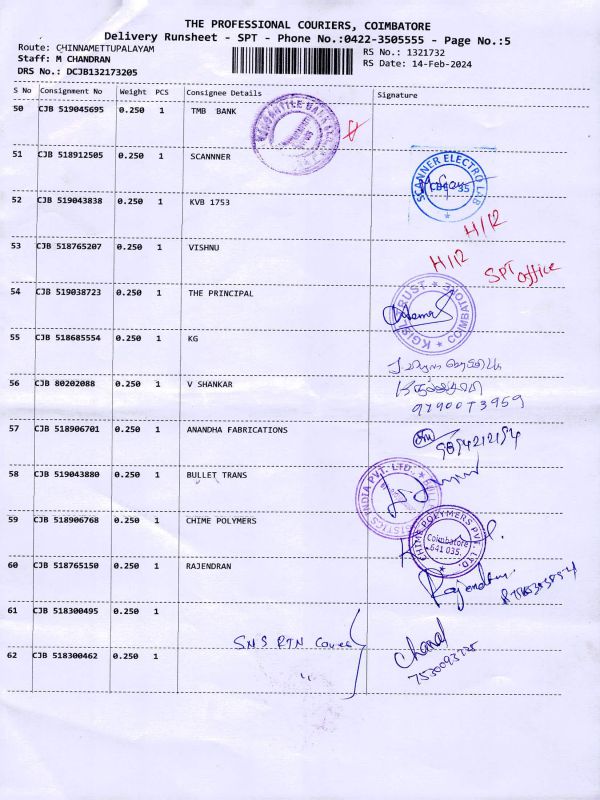 THE PROFESSIONAL COURIERS, COIMBATORE
Delivery Runsheet - SPT - Phone No.:0422-3505555 - Page No.:5
Route: CHINNAMETTUPALAYAM
RS No.: 1321732
Staff: M CHANDRAN
RS Date: 14-Feb-2024
DRS No.: DCJB132173205
S No Consignment No Weight PCS Consignee Details Signature
50 CJB 519045695 0.250 1 TMB BANK
51 CJB 518912505 0.250 1 SCANNNER
SCANNER ELECTRO LAB
52 CJB 519043838 0.250 1 KVB 1753
H/12
53 CJB 518765207 0.250 1 VISHNU
H/12 SPT office
54 CJB 519038723 0.250 1 THE PRINCIPAL
TRUST * COIMBATORE
55 CJB 518685554 0.250 1 KG
56 CJB 80202088 0.250 1 V SHANKAR
97900 73959
57 CJB 518906701 0.250 1 ANANDHA FABRICATIONS
9894212194
58 CJB 519043880 0.250 1 BULLET TRANS
INDIA PVT. LTD.
59 CJB 518906768 0.250 1 CHIME POLYMERS
CHIME POLYMERS PVT. LTD.
Coimbatore
641 035.
60 CJB 518765150 0.250 1 RAJENDRAN
Rajendran
61 CJB 518300495 0.250 1
SNS RTN
62 CJB 518300462 0.250 1
"